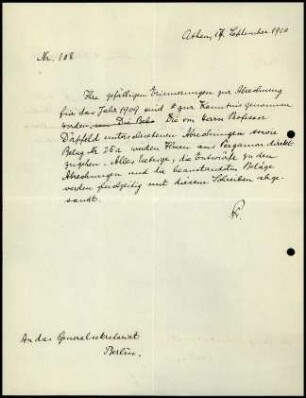 Athen, 17. September 1910
Nr. 108
Ihre gefälligen Erinnerungen zur Abrechnung
für das Jahr 1909 sind zur Kenntnis genommen
worden. Die vom Herrn Professor
Dörpfeld unterschriebenen Abrechnungen sowie
Beleg Nr 25a werden Ihnen aus Pergamon direkt
zugehen. Alles Uebrige, die Entwürfe zu den
Abrechnungen und die beanstandeten Beläge
werden gleichzeitig mit diesem Schreiben abge-
sandt.
K.
An das Generalsekretariat
Berlin.